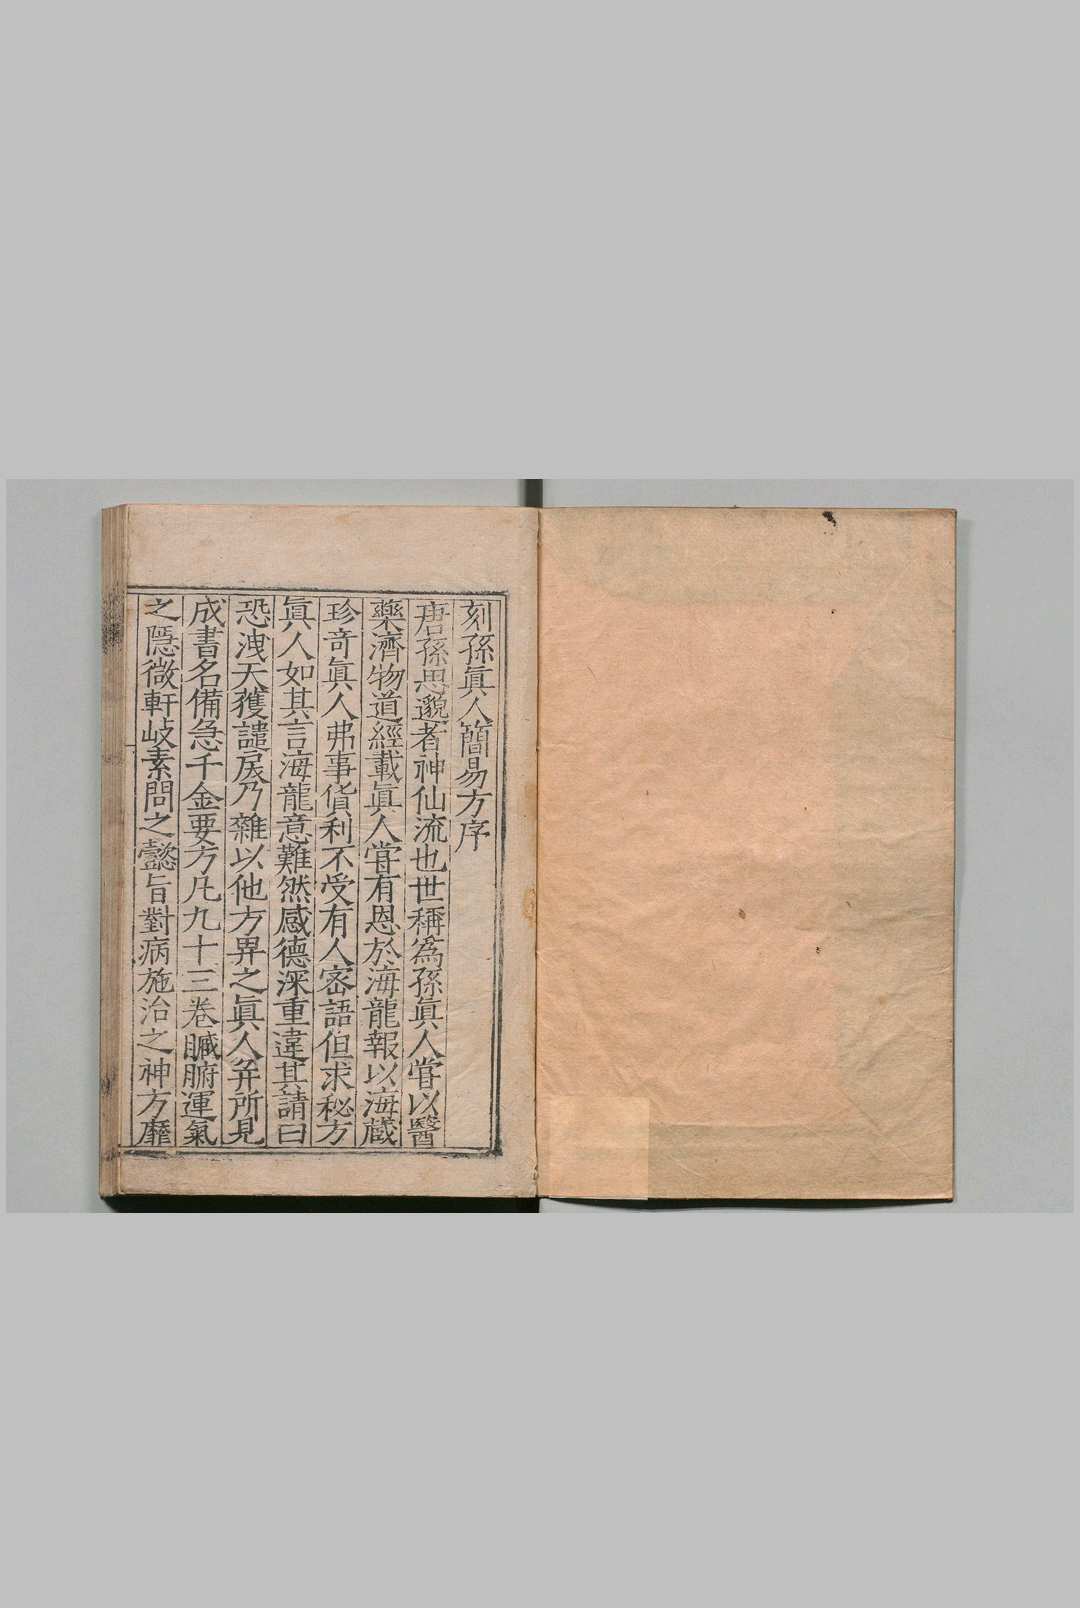 刻孫眞人簡易方序
唐孫思邈者神仙流也世稱為孫眞人嘗以醫
藥濟物道經載眞人嘗有恩於海龍報以海藏
珍奇眞人弗事貨利不受有人密語但求秘方
眞人如其言海龍意難然感德深重違其請曰
恐洩天獲譴戾乃雜以他方畀之眞人并所見
成書名備急千金要方凡九十三卷臟腑運氣
之隱微軒岐素問之懿旨對病施治之神方靡